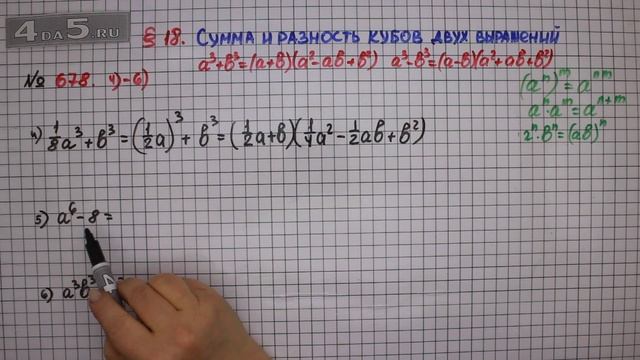 4DA5.RU
§ 18. Сумма и разность кубов двух выражений
a³+b³=(a+b)(a²-ab+b²) a³-b³=(a-b)(a²+ab+b²)
№ 678. 4)-6)
(aⁿ)ᵐ=aⁿᵐ
aⁿ·aᵐ=aⁿ⁺ᵐ
aⁿ·bⁿ=(ab)ⁿ
4) 1/8a³+b³=(1/2a)³+b³=(1/2a+b)(1/4a²-1/2ab+b²)
5) a⁶-8=
6) a³b³